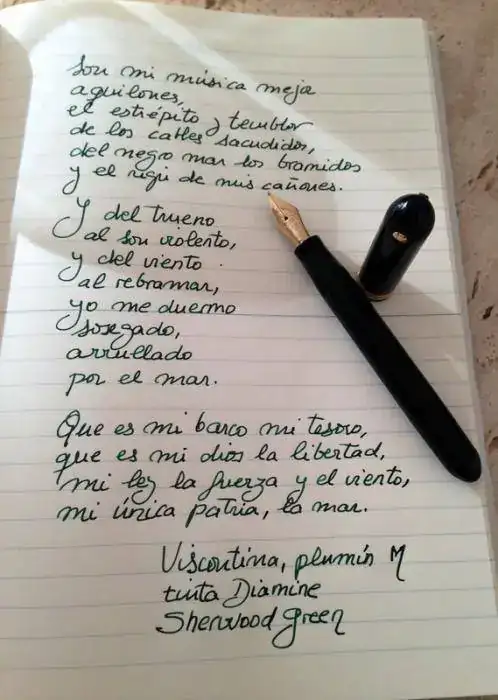 Son mi música mejo
aquilones,
el estrépito y temblor
de los cables sacudidos,
del negro mar los bramidos
y el rugi de mis cañones.
Y del trueno
al son violento,
y del viento
al rebramar,
yo me duermo
sosegado,
arrullado
por el mar.
Que es mi barco mi tesoro,
que es mi dios la libertad,
mi ley la fuerza y el viento,
mi única patria, la mar.
Viscontina, plumín M
tinta Diamine
Sherwood green